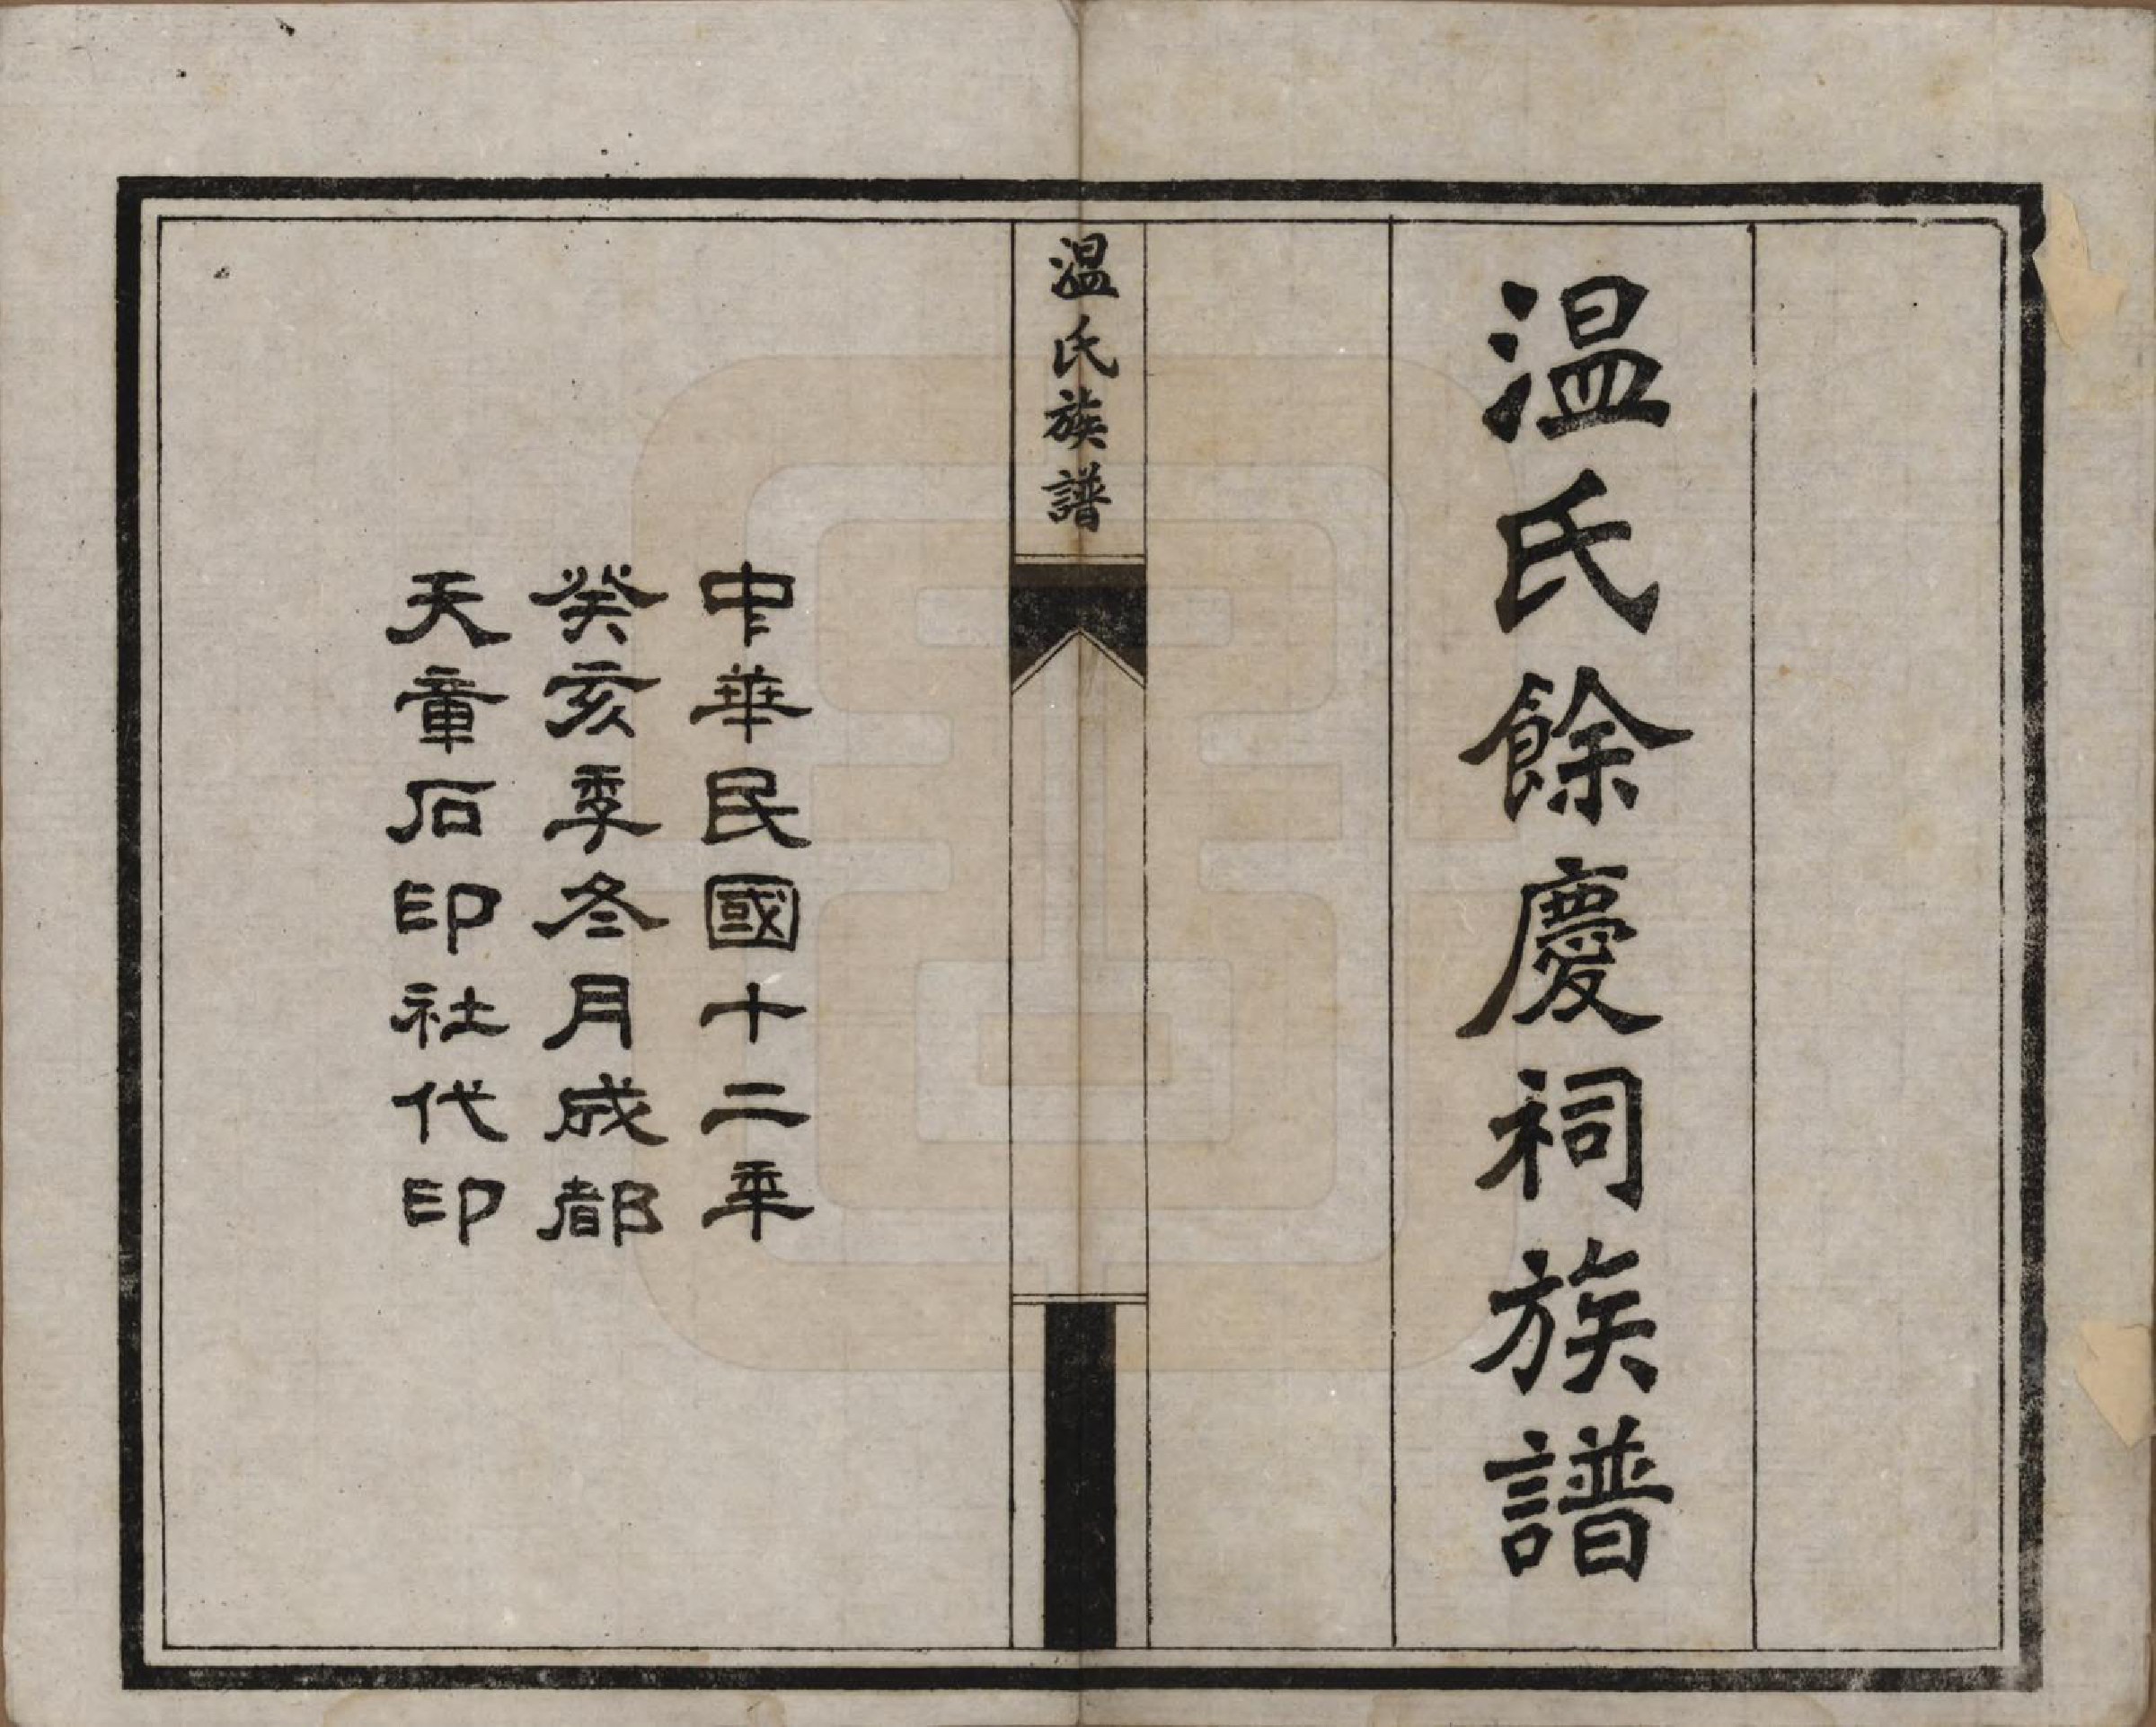 温氏餘慶祠族譜
温氏族譜
中華民國十二年
癸亥季冬月成都
天章石印社代印